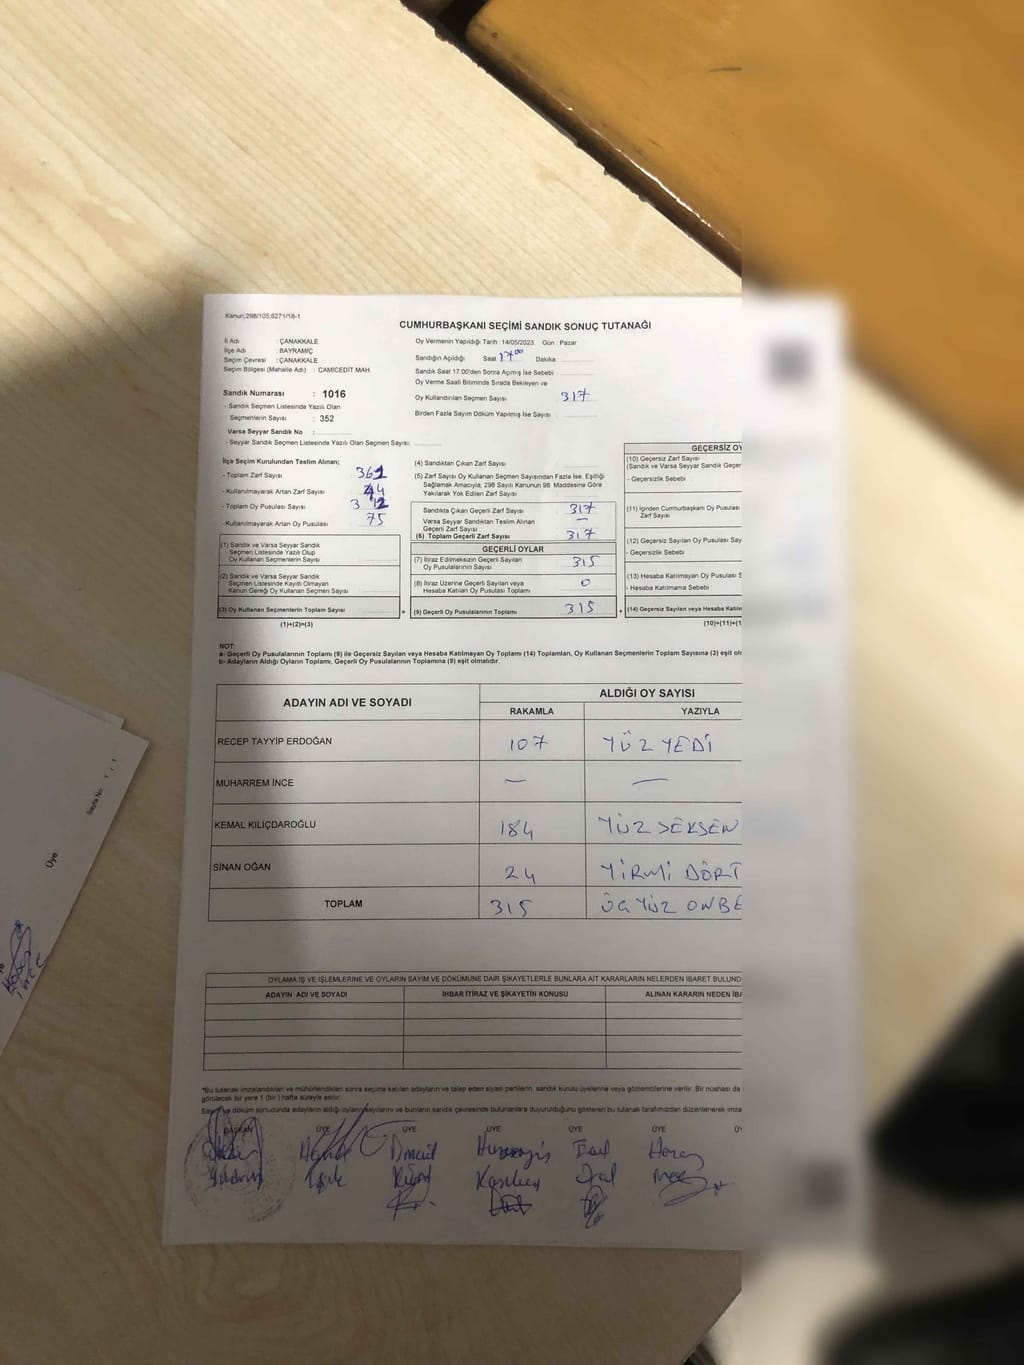 Kanun;298/105,6271/18-1
CUMHURBAŞKANI SEÇİMİ SANDIK SONUÇ TUTANAĞI
İl Adı : ÇANAKKALE
İlçe Adı : BAYRAMİÇ
Seçim Çevresi : ÇANAKKALE
Seçim Bölgesi (Mahalle Adı) : CAMİCEDİT MAH.
Sandık Numarası : 1016
- Sandık Seçmen Listesinde Yazılı Olan
Seçmenlerin Sayısı : 352
Varsa Seyyar Sandık No :
- Seyyar Sandık Seçmen Listesinde Yazılı Olan Seçmen Sayısı:
Oy Vermenin Yapıldığı Tarih : 14/05/2023 Gün : Pazar
Sandığın Açıldığı Saat 17 00 Dakika :
Sandık Saat 17:00'den Sonra Açılmış İse Sebebi
Oy Verme Saati Bitiminde Sırada Bekleyen ve
Oy Kullandırılan Seçmen Sayısı 317
Birden Fazla Sayım Döküm Yapılmış İse Sayısı
İlçe Seçim Kurulundan Teslim Alınan;
- Toplam Zarf Sayısı
- Kullanılmayarak Artan Zarf Sayısı 44
- Toplam Oy Pusulası Sayısı
- Kullanılmayarak Artan Oy Pusulası 75
(1) Sandık ve Varsa Seyyar Sandık
Seçmen Listesinde Yazılı Olup
Oy Kullanan Seçmenlerin Sayısı
(2) Sandık ve Varsa Seyyar Sandık
Seçmen Listesinde Kayıtlı Olmayan
Kanun Gereği Oy Kullanan Seçmen Sayısı
(3) Oy Kullanan Seçmenlerin Toplam Sayısı
(1)+(2)=(3)
(4) Sandıktan Çıkan Zarf Sayısı
(5) Zarf Sayısı Oy Kullanan Seçmen Sayısından Fazla İse, Eşitliği
Sağlamak Amacıyla, 298 Sayılı Kanunun 98. Maddesine Göre
Yakılarak Yok Edilen Zarf Sayısı
Sandıkta Çıkan Geçerli Zarf Sayısı 317
Varsa Seyyar Sandıktan Teslim Alınan
Geçerli Zarf Sayısı —
(6) Toplam Geçerli Zarf Sayısı 317
GEÇERLİ OYLAR
(7) İtiraz Edilmeksizin Geçerli Sayılan
Oy Pusulalarının Sayısı 315
(8) İtiraz Üzerine Geçerli Sayılan veya
Hesaba Katılan Oy Pusulası Toplamı 0
= (9) Geçerli Oy Pusulalarının Toplamı 315 +
GEÇERSİZ OY
(10) Geçersiz Zarf Sayısı
(Sandık ve Varsa Seyyar Sandık Geçer
- Geçersizlik Sebebi
(11) İçinden Cumhurbaşkanı Oy Pusulası
Zarf Sayısı
(12) Geçersiz Sayılan Oy Pusulası Say
- Geçersizlik Sebebi
(13) Hesaba Katılmayan Oy Pusulası S
- Hesaba Katılmama Sebebi
(14) Geçersiz Sayılan veya Hesaba Katılm
(10)+(11)+(1
NOT:
a- Geçerli Oy Pusulalarının Toplamı (9) ile Geçersiz Sayılan veya Hesaba Katılmayan Oy Toplamı (14) Toplamları, Oy Kullanan Seçmenlerin Toplam Sayısına (3) eşit olm
b- Adayların Aldığı Oyların Toplamı, Geçerli Oy Pusulalarının Toplamına (9) eşit olmalıdır.
ADAYIN ADI VE SOYADI ALDIĞI OY SAYISI
RAKAMLA YAZIYLA
RECEP TAYYİP ERDOĞAN 107 YÜZ YEDİ
MUHARREM İNCE — —
KEMAL KILIÇDAROĞLU 184 YÜZ SEKSEN
SİNAN OĞAN 24 YİRMİ DÖRT
TOPLAM 315 ÜÇ YÜZ ONBE
OYLAMA İŞ VE İŞLEMLERİNE VE OYLARIN SAYIM VE DÖKÜMÜNE DAİR ŞİKAYETLERLE BUNLARA AİT KARARLARIN NELERDEN İBARET BULUND
ADAYIN ADI VE SOYADI İHBAR İTİRAZ VE ŞİKAYETİN KONUSU ALINAN KARARIN NEDEN İBA
*Bu tutanak imzalandıktan ve mühürlendikten sonra seçime katılan adayların ve talep eden siyasi partilerin, sandık kurulu üyelerine veya gözlemcilerine verilir. Bir nüshası da
görülecek bir yere 1 (bir) hafta süreyle asılır.
Sayım ve döküm sonucunda adayların aldığı oyların sayılarını ve bunların sandık çevresinde bulunanlara duyurulduğunu gösteren bu tutanak tarafımızdan düzenlenerek imza
BAŞKAN ÜYE ÜYE ÜYE ÜYE ÜYE ÜY
Yıldırım
Sayfa No: 1 / 1
Üye